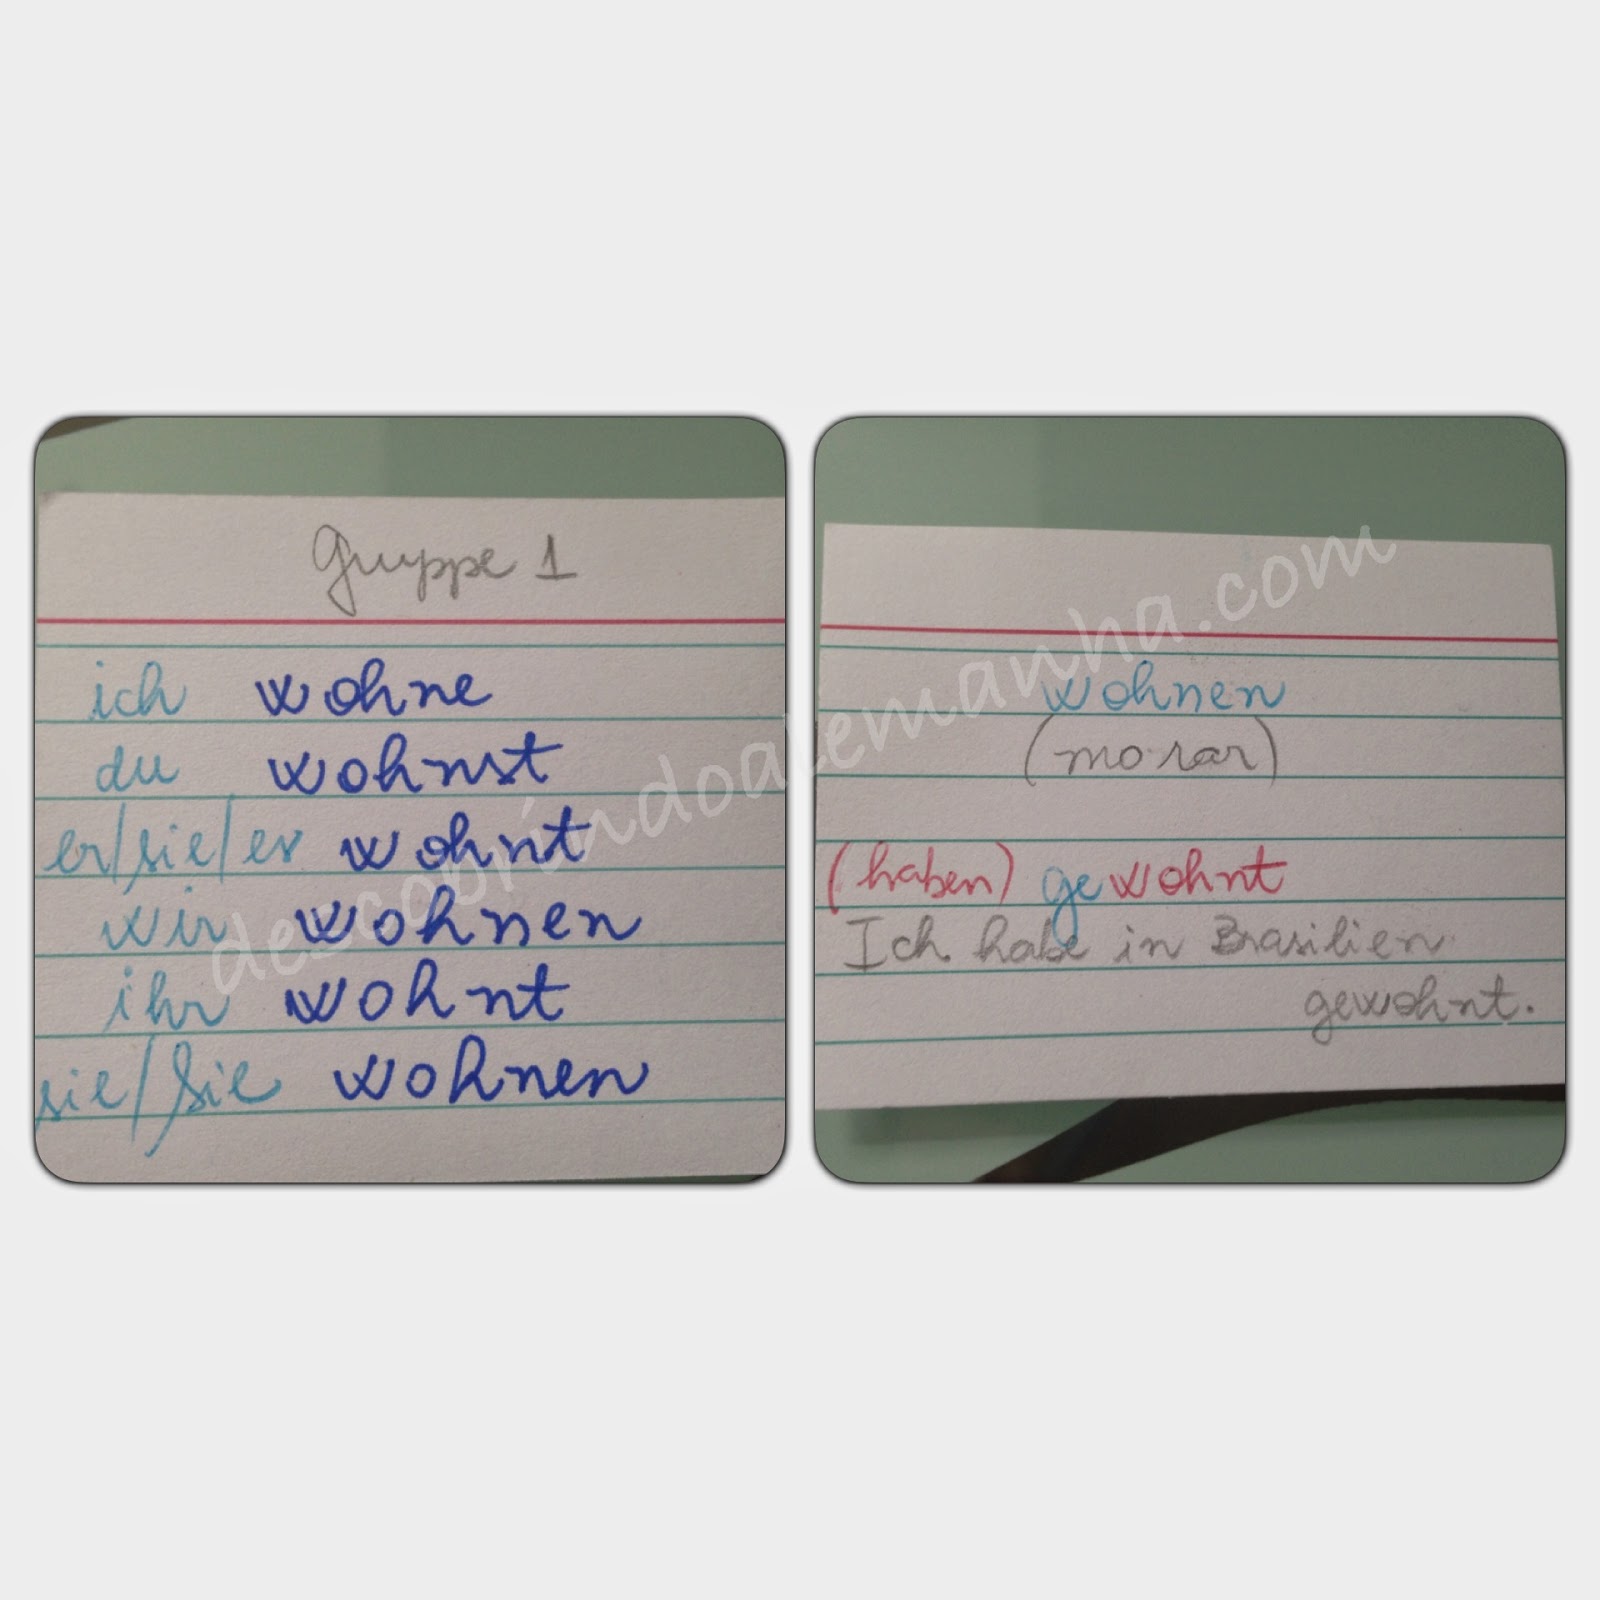 Gruppe 1
ich wohne
du wohnst
er/sie/es wohnt
wir wohnen
ihr wohnt
sie/Sie wohnen
wohnen
(morar)
(haben) gewohnt
Ich habe in Brasilien
gewohnt.
descobrindoalemanha.com